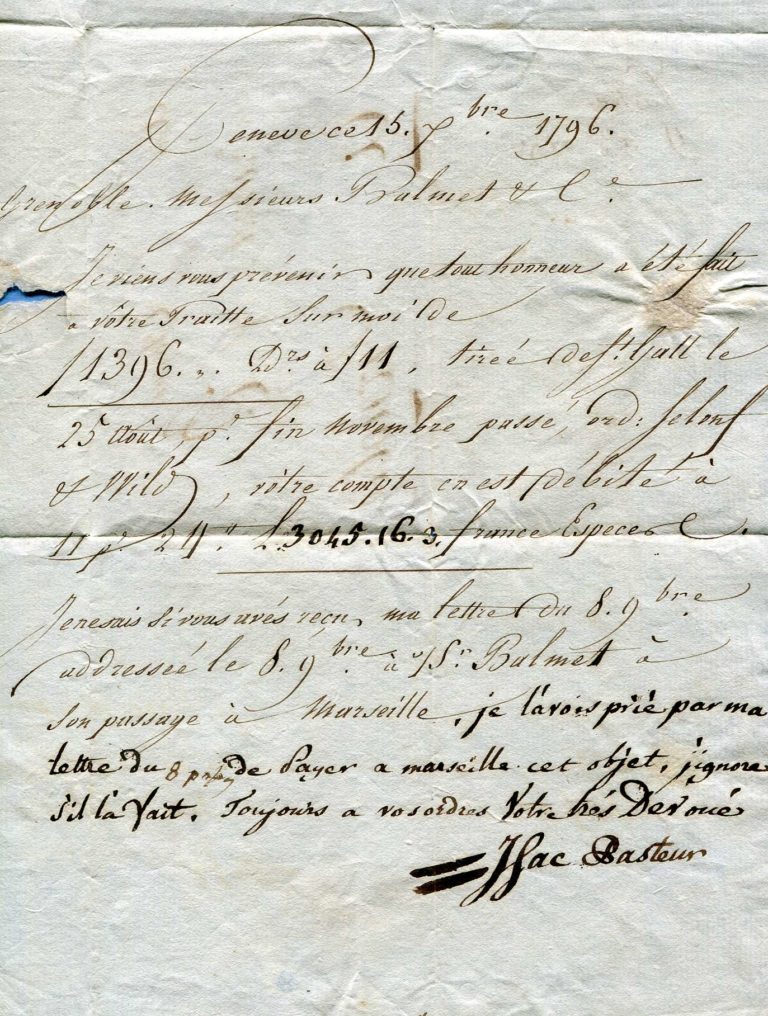 Geneve ce 15. Xbre 1796.
Grenoble. Messieurs Balmet & Ce
Je viens vous prévenir que tout honneur a été fait
a vôtre Traitte sur moi de
f1396. „ Drs à f11, tirée de St. Gall le
25 Août pr. fin Novembre passé, ord:
& Wild, vôtre compte en est débité à
11 pr. 24 L3045.16.3. france Especes
Je ne sais si vous avés reçu ma lettre du 8. 9bre
addresseé le 8. 9bre à Sr. Balmet à
son passage à Marseille, je l'avois prié par ma
lettre du 8 de Payer a marseille cet objet, j'ignore
s'il la fait. Toujours a vos ordres Votre trés Devoué
Isac Pasteur